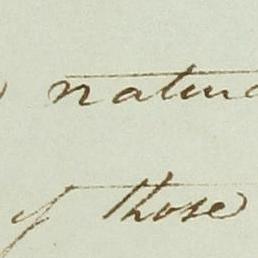 natura
of those